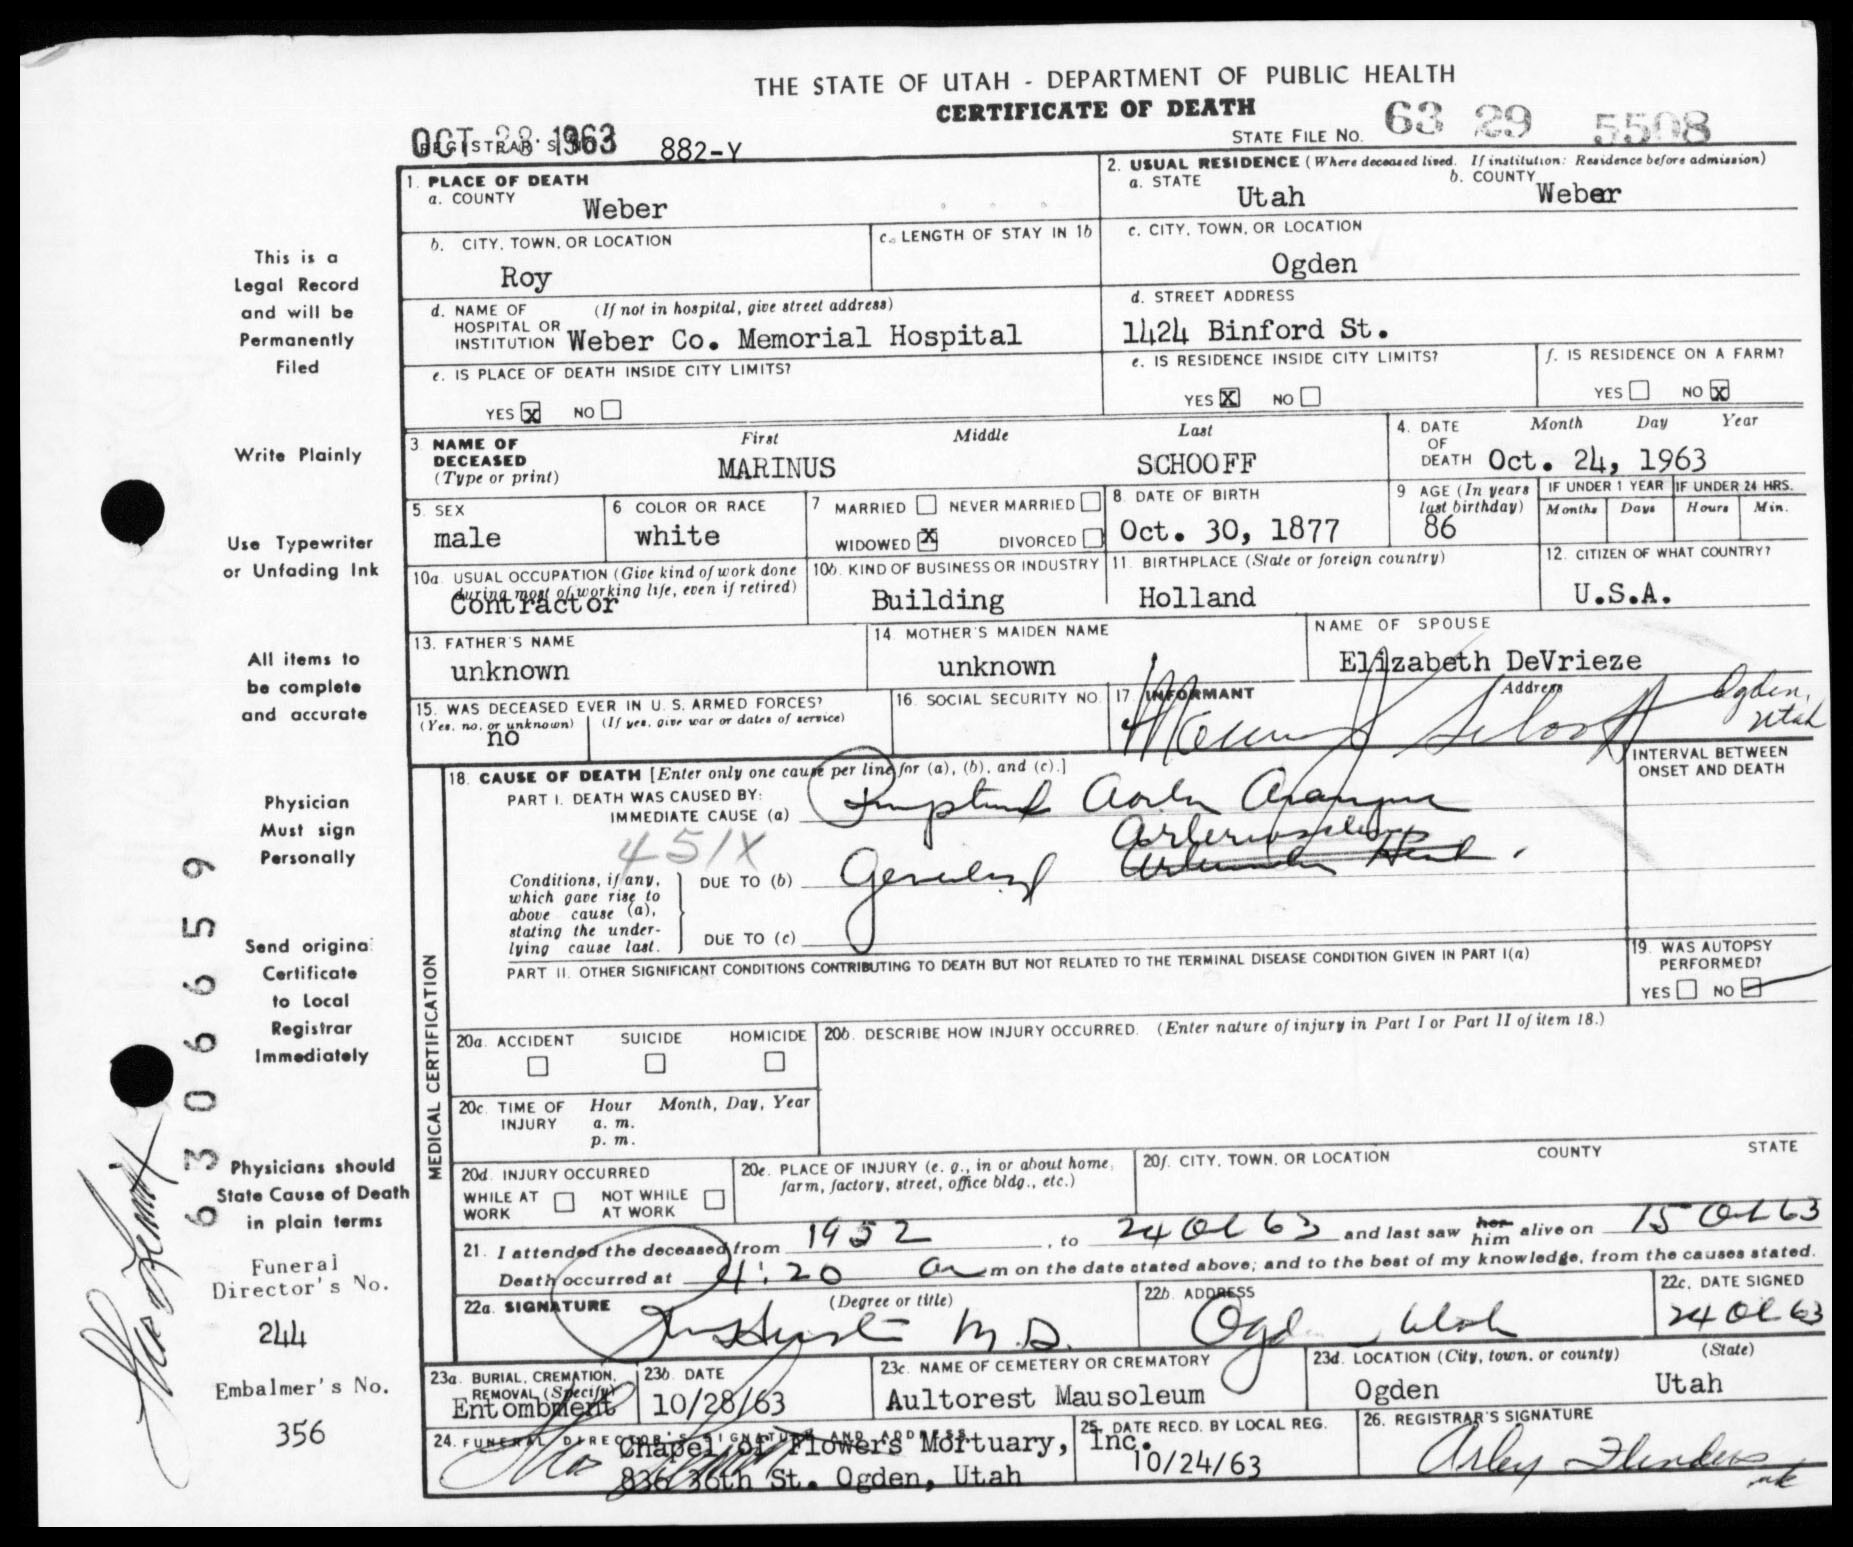 THE STATE OF UTAH - DEPARTMENT OF PUBLIC HEALTH
CERTIFICATE OF DEATH
OCT 28 1963
REGISTRAR'S NO. 882-Y
STATE FILE NO. 63 29 5508
1. PLACE OF DEATH
a. COUNTY Weber
2. USUAL RESIDENCE (Where deceased lived. If institution: Residence before admission)
a. STATE Utah b. COUNTY Weber
b. CITY, TOWN, OR LOCATION Roy
c. LENGTH OF STAY IN 1b
c. CITY, TOWN, OR LOCATION Ogden
d. NAME OF HOSPITAL OR INSTITUTION (If not in hospital, give street address) Weber Co. Memorial Hospital
d. STREET ADDRESS 1424 Binford St.
e. IS PLACE OF DEATH INSIDE CITY LIMITS?
YES X NO
e. IS RESIDENCE INSIDE CITY LIMITS?
YES X NO
f. IS RESIDENCE ON A FARM?
YES NO X
3. NAME OF DECEASED (Type or print)
First Middle Last
MARINUS SCHOOFF
4. DATE OF DEATH Month Day Year
Oct. 24, 1963
5. SEX male
6 COLOR OR RACE white
7 MARRIED NEVER MARRIED
WIDOWED X DIVORCED
8. DATE OF BIRTH Oct. 30, 1877
9 AGE (In years last birthday) 86
IF UNDER 1 YEAR Months Days
IF UNDER 24 HRS. Hours Min.
10a. USUAL OCCUPATION (Give kind of work done during most of working life, even if retired) Contractor
10b. KIND OF BUSINESS OR INDUSTRY Building
11. BIRTHPLACE (State or foreign country) Holland
12. CITIZEN OF WHAT COUNTRY? U.S.A.
13. FATHER'S NAME unknown
14. MOTHER'S MAIDEN NAME unknown
NAME OF SPOUSE Elizabeth DeVrieze
15. WAS DECEASED EVER IN U. S. ARMED FORCES?
(Yes, no, or unknown) (If yes, give war or dates of service)
no
16. SOCIAL SECURITY NO.
17. INFORMANT Address
Ogden, Utah
18. CAUSE OF DEATH [Enter only one cause per line for (a), (b), and (c).]
INTERVAL BETWEEN ONSET AND DEATH
PART I. DEATH WAS CAUSED BY:
IMMEDIATE CAUSE (a)
451X
Conditions, if any, which gave rise to above cause (a), stating the underlying cause last.
DUE TO (b) Arteriosclerosis
DUE TO (c)
PART II. OTHER SIGNIFICANT CONDITIONS CONTRIBUTING TO DEATH BUT NOT RELATED TO THE TERMINAL DISEASE CONDITION GIVEN IN PART I(a)
19. WAS AUTOPSY PERFORMED?
YES NO
MEDICAL CERTIFICATION
20a. ACCIDENT SUICIDE HOMICIDE
20b. DESCRIBE HOW INJURY OCCURRED. (Enter nature of injury in Part I or Part II of item 18.)
20c. TIME OF INJURY Hour Month, Day, Year
a. m.
p. m.
20d. INJURY OCCURRED
WHILE AT WORK NOT WHILE AT WORK
20e. PLACE OF INJURY (e. g., in or about home, farm, factory, street, office bldg., etc.)
20f. CITY, TOWN, OR LOCATION COUNTY STATE
21. I attended the deceased from 1952, to 24 Oct 63 and last saw her him alive on 15 Oct 63
Death occurred at 4:20 a m on the date stated above; and to the best of my knowledge, from the causes stated.
22a. SIGNATURE (Degree or title) M.D.
22b. ADDRESS Ogden, Utah
22c. DATE SIGNED 24 Oct 63
23a. BURIAL, CREMATION, REMOVAL (Specify) Entombment
23b. DATE 10/28/63
23c. NAME OF CEMETERY OR CREMATORY Aultorest Mausoleum
23d. LOCATION (City, town, or county) (State)
Ogden Utah
24. FUNERAL DIRECTOR'S SIGNATURE AND ADDRESS
Chapel of Flowers Mortuary, Inc.
836 36th St. Ogden, Utah
25. DATE RECD. BY LOCAL REG. 10/24/63
26. REGISTRAR'S SIGNATURE
Arley Flinders
This is a
Legal Record
and will be
Permanently
Filed
Write Plainly
Use Typewriter
or Unfading Ink
All items to
be complete
and accurate
Physician
Must sign
Personally
Send original
Certificate
to Local
Registrar
Immediately
Physicians should
State Cause of Death
in plain terms
Funeral
Director's No.
244
Embalmer's No.
356
6306659